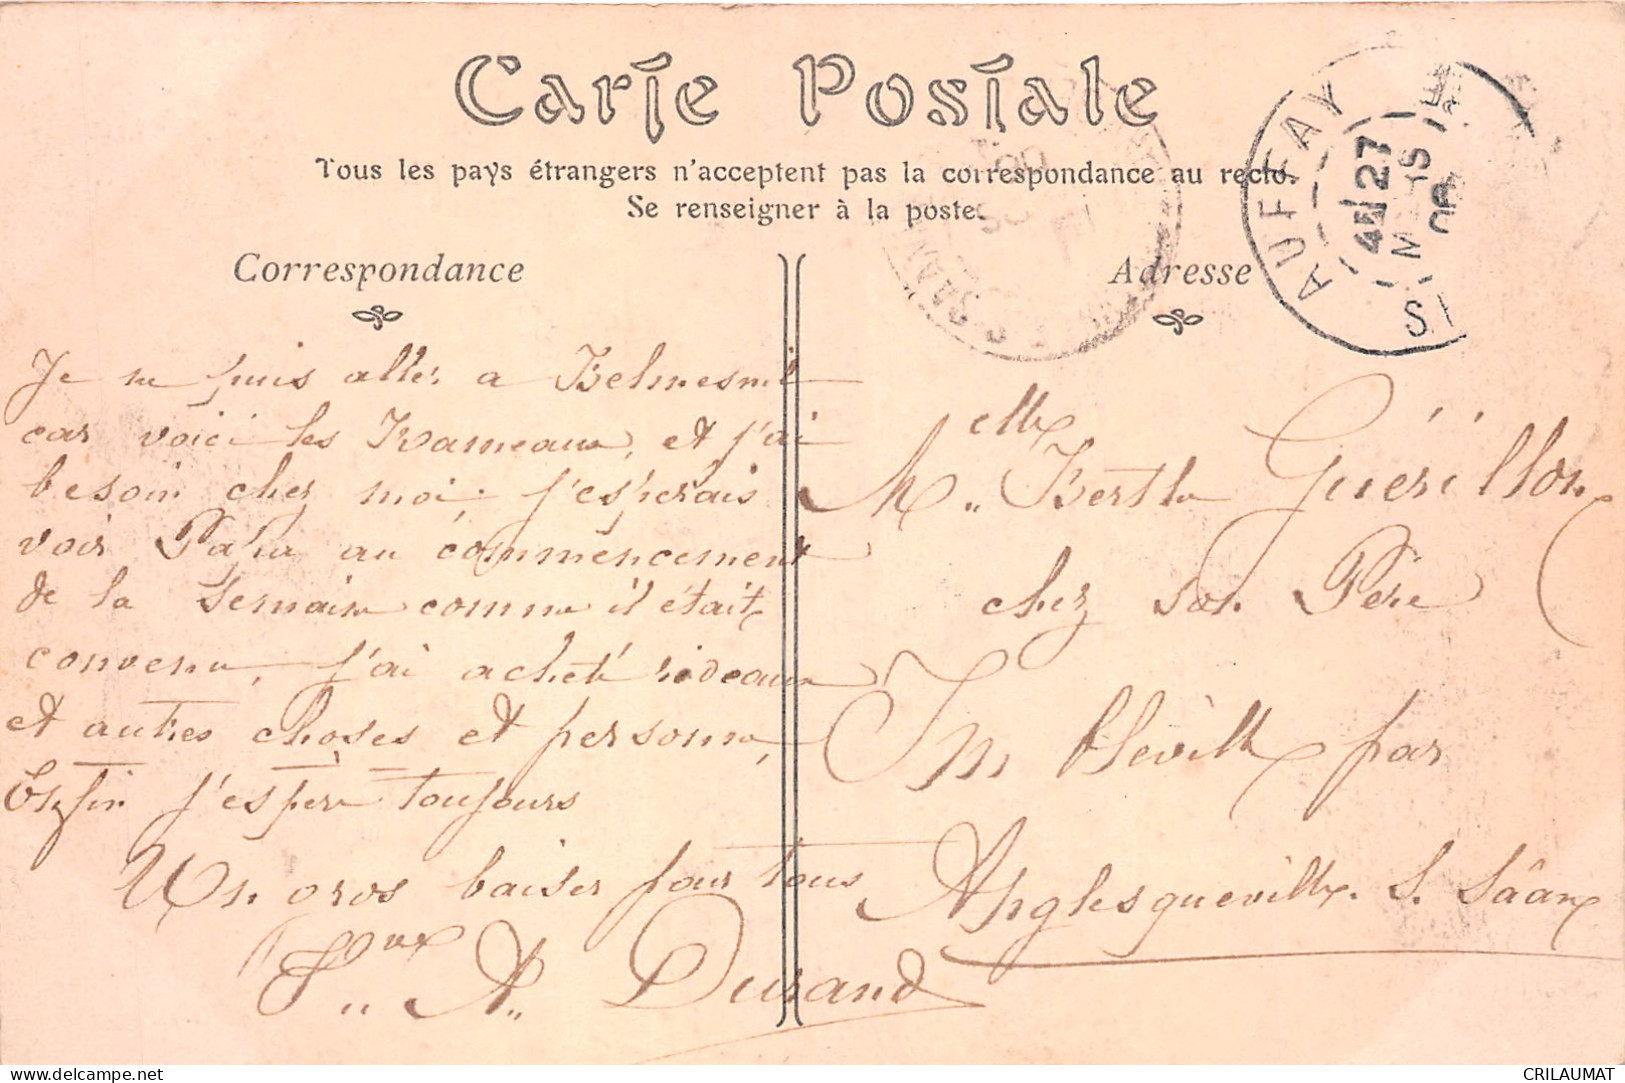 Carte Postale
Tous les pays étrangers n'acceptent pas la correspondance au recto.
Se renseigner à la poste.
Correspondance
Je ne puis aller a Belmesnil
car voici les Rameaux, et j'ai
besoin chez moi; j'espérais
voir Papa au commencement
de la Semaine comme il était
convenu, j'ai acheté rideaux
et autres choses et personne,
Enfin j'espère toujours
Un gros baiser pour tous
Vve A. Durand
Adresse
Melle Berthe Guérillon
chez son Père
Imbleville par
Anglesqueville S. Sâane
AUFFAY
27
MARS
06
delcampe.net
CRILAUMAT